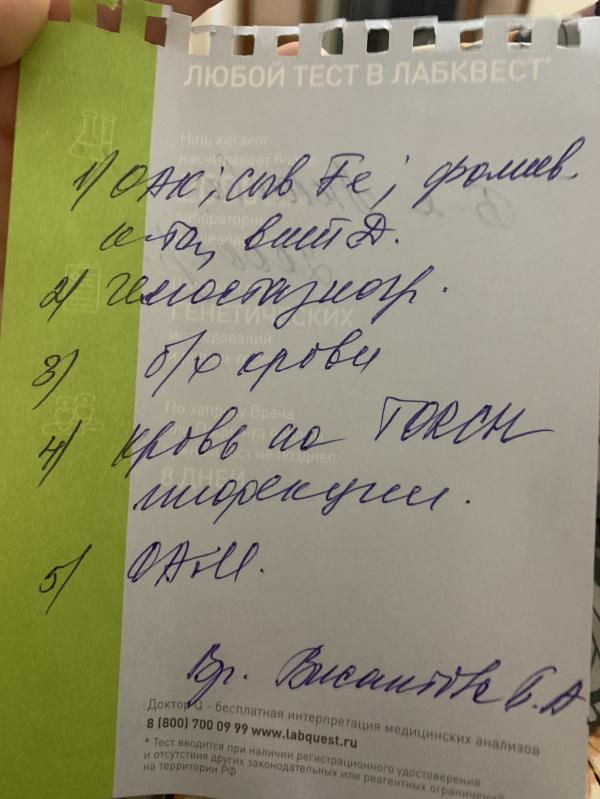 ЛЮБОЙ ТЕСТ В ЛАБКВЕСТ*
Наш каталог
насчитывает более
1) ОАК; сыв Fe; фолиев.
к-та, вит Д.
2) гемостазиогр.
ГЕНЕТИЧЕСКИХ
исследований
3) б/х крови
По запросу Врача
4) кровь на TORCH
не позднее
8 ДНЕЙ
инфекции.
5) ОАМ.
Вр.
Доктор Q - бесплатная интерпретация медицинских анализов
8 (800) 700 09 99 www.labquest.ru
* Тест вводится при наличии регистрационного удостоверения
и отсутствия других законодательных или реагентных ограничений
на территории РФ